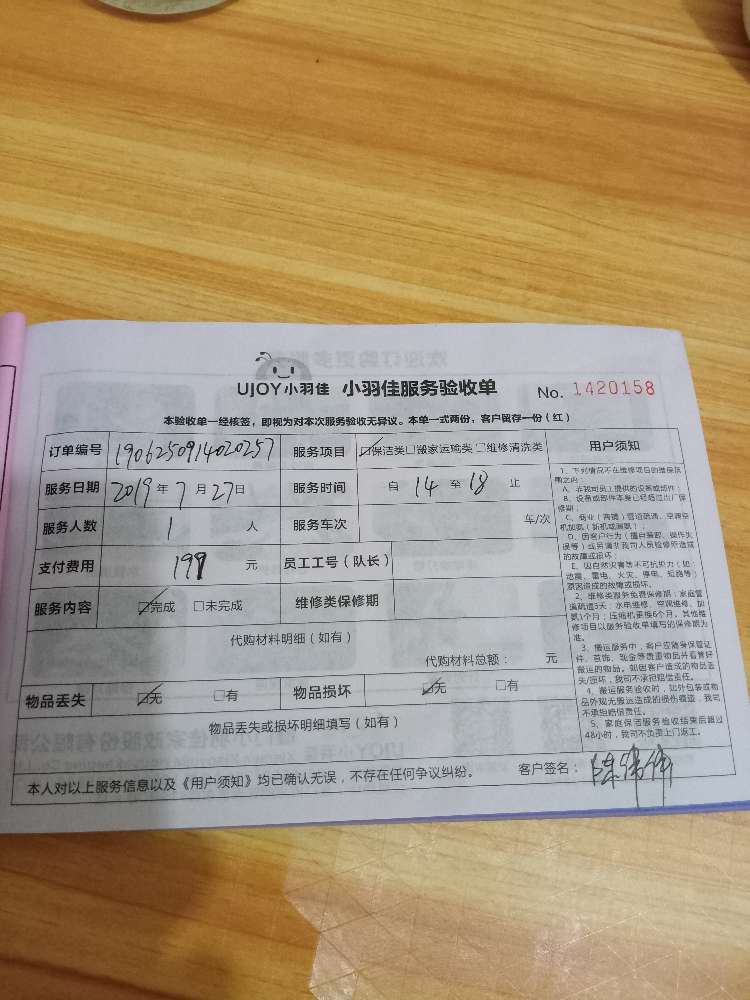 UJOY小羽佳 小羽佳服务验收单 No. 1420158
本验收单一经核签，即视为对本次服务验收无异议。本单一式两份，客户留存一份（红）
订单编号 1906250914020257 服务项目 ☑保洁类□搬家运输类□维修清洗类 用户须知
服务日期 2019年7月27日 服务时间 自 14 至 18 止
服务人数 1 人 服务车次 车/次
支付费用 199 元 员工工号（队长）
服务内容 ☑完成 □未完成 维修类保修期
代购材料明细（如有）
代购材料总额： 元
物品丢失 ☑无 □有 物品损坏 ☑无 □有
物品丢失或损坏明细填写（如有）
本人对以上服务信息以及《用户须知》均已确认无误，不存在任何争议纠纷。 客户签名：陈伟伟
1、下列情况不在维修项目的维保范
围之内：
A、非我司员工提供的设备或部件；
B、设备或部件本身已经超过出厂保
修期；
C、商业（商铺）管道疏通、空调空
机加氟（新机或漏氟）；
D、因客户行为（擅自装卸、操作失
误等）或另请非我司人员检修所造成
的故障或损坏；
E、因自然灾害等不可抗势力（如
地震、雷电、火灾、停电、短路等）
原因造成的故障或损坏。
2、维修类服务免费保修期：家庭管
道疏通3天；水电维修、空调维修、加
氟1个月；压缩机更换6个月。其他维
修项目以服务验收单填写的保修期为
准。
3、搬运服务中，客户应随身保管证
件、首饰、现金等贵重物品并看管好
搬运的物品。如因客户造成的物品丢
失/损坏，我司不承担赔偿责任。
4、搬运服务验收时，如外包装或物
品外观无搬运造成的损伤痕迹，我司
不承担赔偿责任。
5、家庭保洁服务验收结束后超过
48小时，我司不负责上门返工。